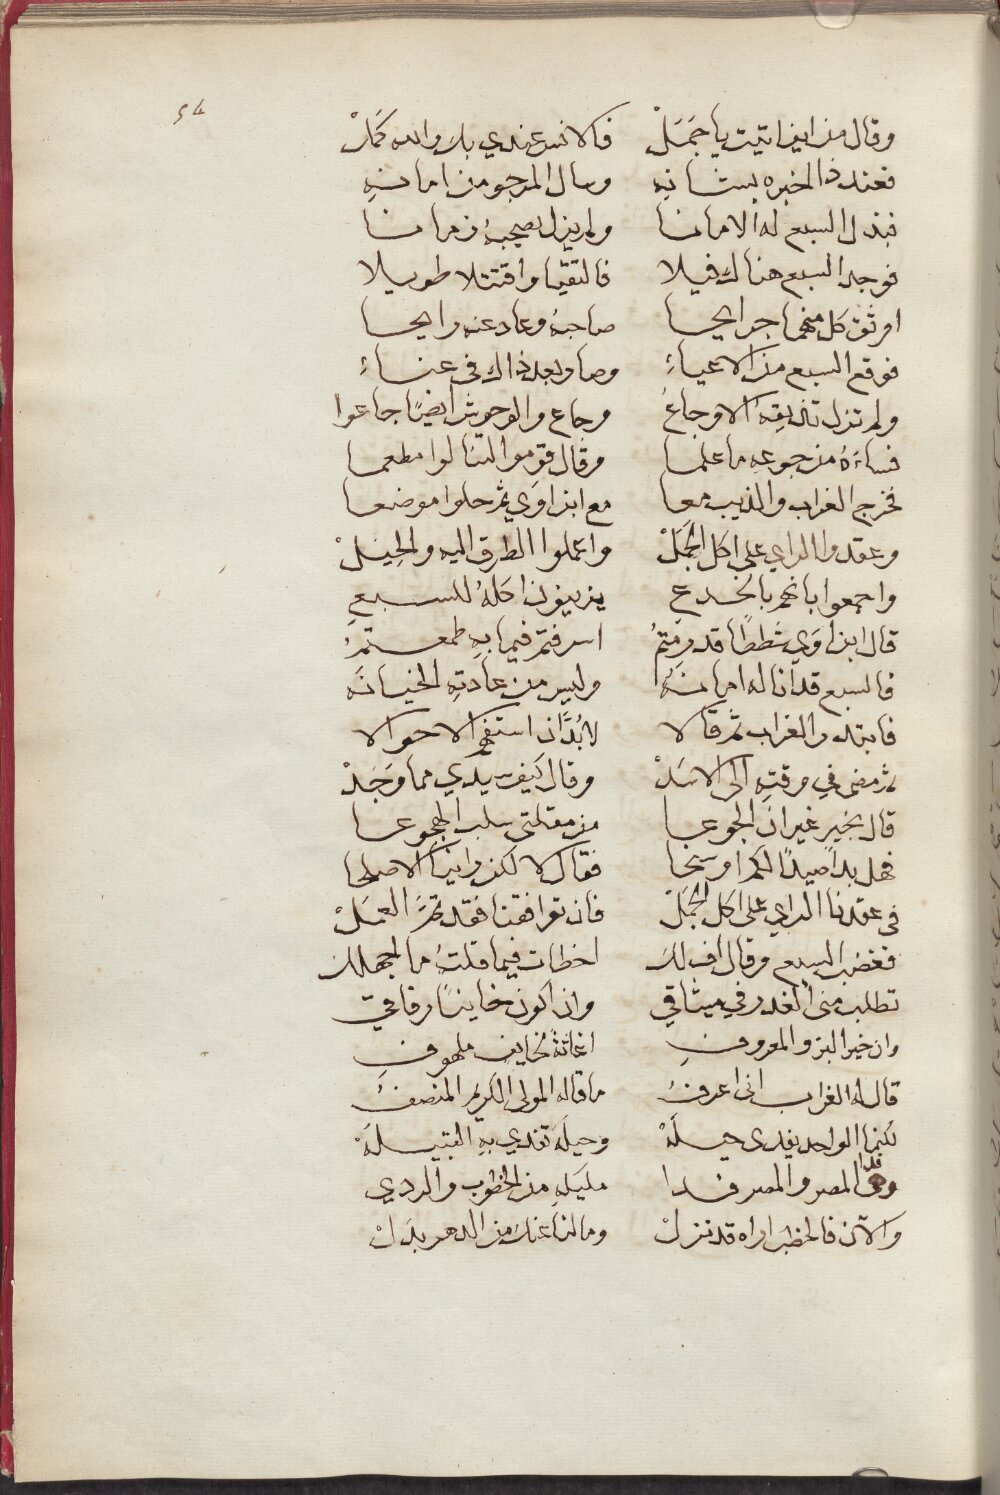 54
وقال من اين اتيت يا جمل فالانس عندي بك والله كمل
فعند ذا اخبره بشانه وسال المرجو من امانه
فبذل السبع له الامانا ولم يزل يصحبه زمانا
فوجد السبع هناك فيلا فالتقيا واقتتلا طويلا
اوثق كل منهما جرايحا صاحبه وعاد عنه رايحا
فوقع السبع من الاعياء وصار بعد ذاك في عناء
ولم تزل تذيقه الاوجاع وجاع والوحوش ايضا جاعوا
فساءه من جوعه ما علما وقال قوموا لتنالوا مطعما
فخرج الغراب والذيب معا مع ابن اوي ثم حلوا موضعا
وعقدوا الراي على اكل الجمل واعملوا الطرق اليه والحيل
واجمعوا بانهم بالخدع يزينون اكله للسبع
قال ابن اوي شططا قد رمتم اسرفتم فيما به طمعتم
فالسبع قد انا له امانه وليس من عادته الخيانه
فابتدر الغراب ثم قالا لا بد ان استفهم الاحوالا
ثم مضى في وقته الى الاسد وقال كيف سيدي مما وجد
قال بخير غير ان الجوعا من مقلتي سلب الهجوعا
فهل بدا صيد لكم او سنحا فقال لا لكن راينا الاصلحا
في عقدنا الراي على اكل الجمل فان توافقنا فقد تم العمل
فغضب السبع وقال اف لك اخطات فيما قلت ما اجهلك
تطلب منى الغدر في ميثاقي وان اكون خاينا رفاقي
وان خير البر والمعروف اغاثة لخايف ملهوف
قال له الغراب انى اعرف ما قاله المولى الكريم المنصف
لكنما الواحد يفدى حيله وحيلة تفدي به القبيله
وقد المصر والمصر فدا مليكه من الخطوب والردي
والآن فالخطب اراه قد نزل وما لنا عنك من الدهر بدل